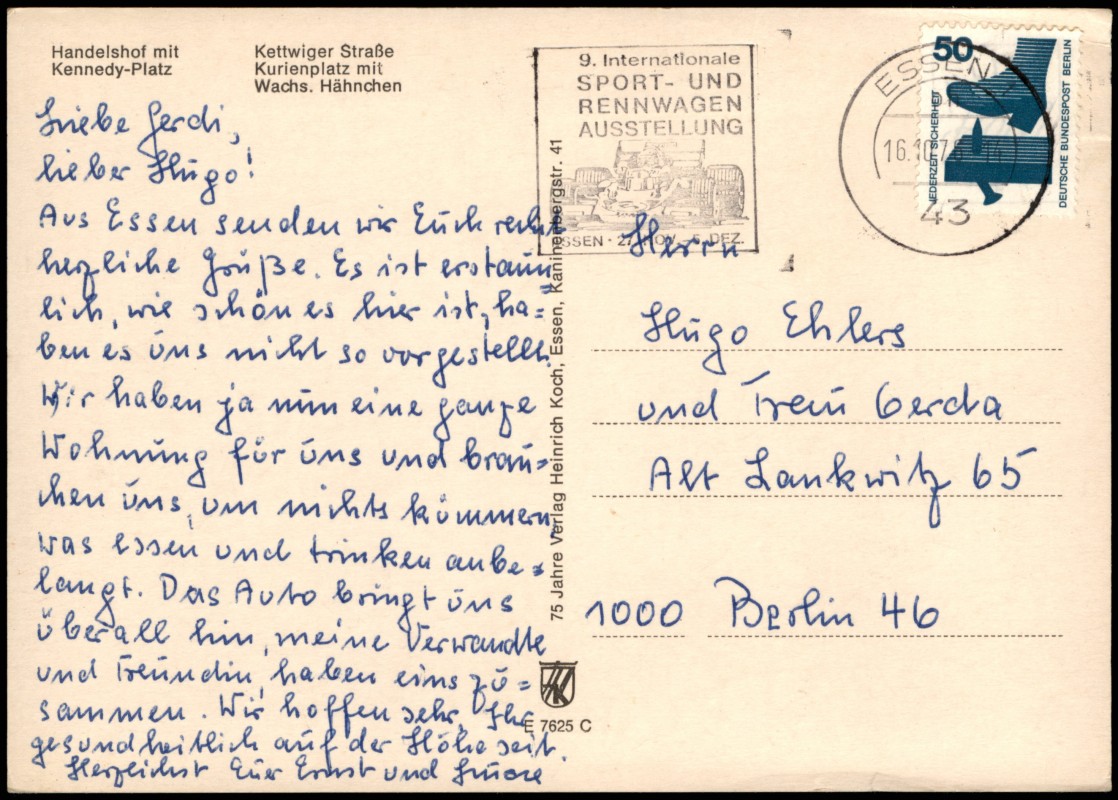 Handelshof mit
Kennedy-Platz
Kettwiger Straße
Kurienplatz mit
Wachs. Hähnchen
Liebe Gerdi,
lieber Hugo!
Aus Essen senden wir Euch recht
herzliche Grüße. Es ist erstaun
lich, wie schön es hier ist, ha-
ben es uns nicht so vorgestellt.
Wir haben ja nun eine ganze
Wohnung für uns und brau-
chen uns, um nichts kümmern,
was essen und trinken anbe-
langt. Das Auto bringt uns
überall hin, meine Verwandte
und Freundin, haben eins zu-
sammen. Wir hoffen sehr, Ihr
gesundheitlich auf der Höhe seit.
Herzlichst Euer Ernst und
75 Jahre Verlag Heinrich Koch, Essen, Kaninenbergstr. 41
E 7625 C
9. Internationale
SPORT- UND
RENNWAGEN
AUSSTELLUNG
ESSEN · 27. NOV. - 5. DEZ.
ESSEN 1
16.10.7
43
50
JEDERZEIT SICHERHEIT
DEUTSCHE BUNDESPOST BERLIN
Herrn
Hugo Ehlers
und Frau Gerda
Alt Lankwitz 65
1000 Berlin 46